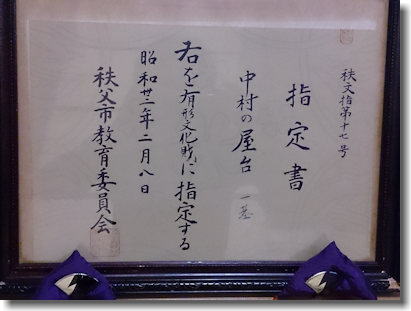 秩文指第十七号
指定書
中村の屋台 一基
右を有形文化財に指定する
昭和卅二年二月八日
秩父市教育委員会